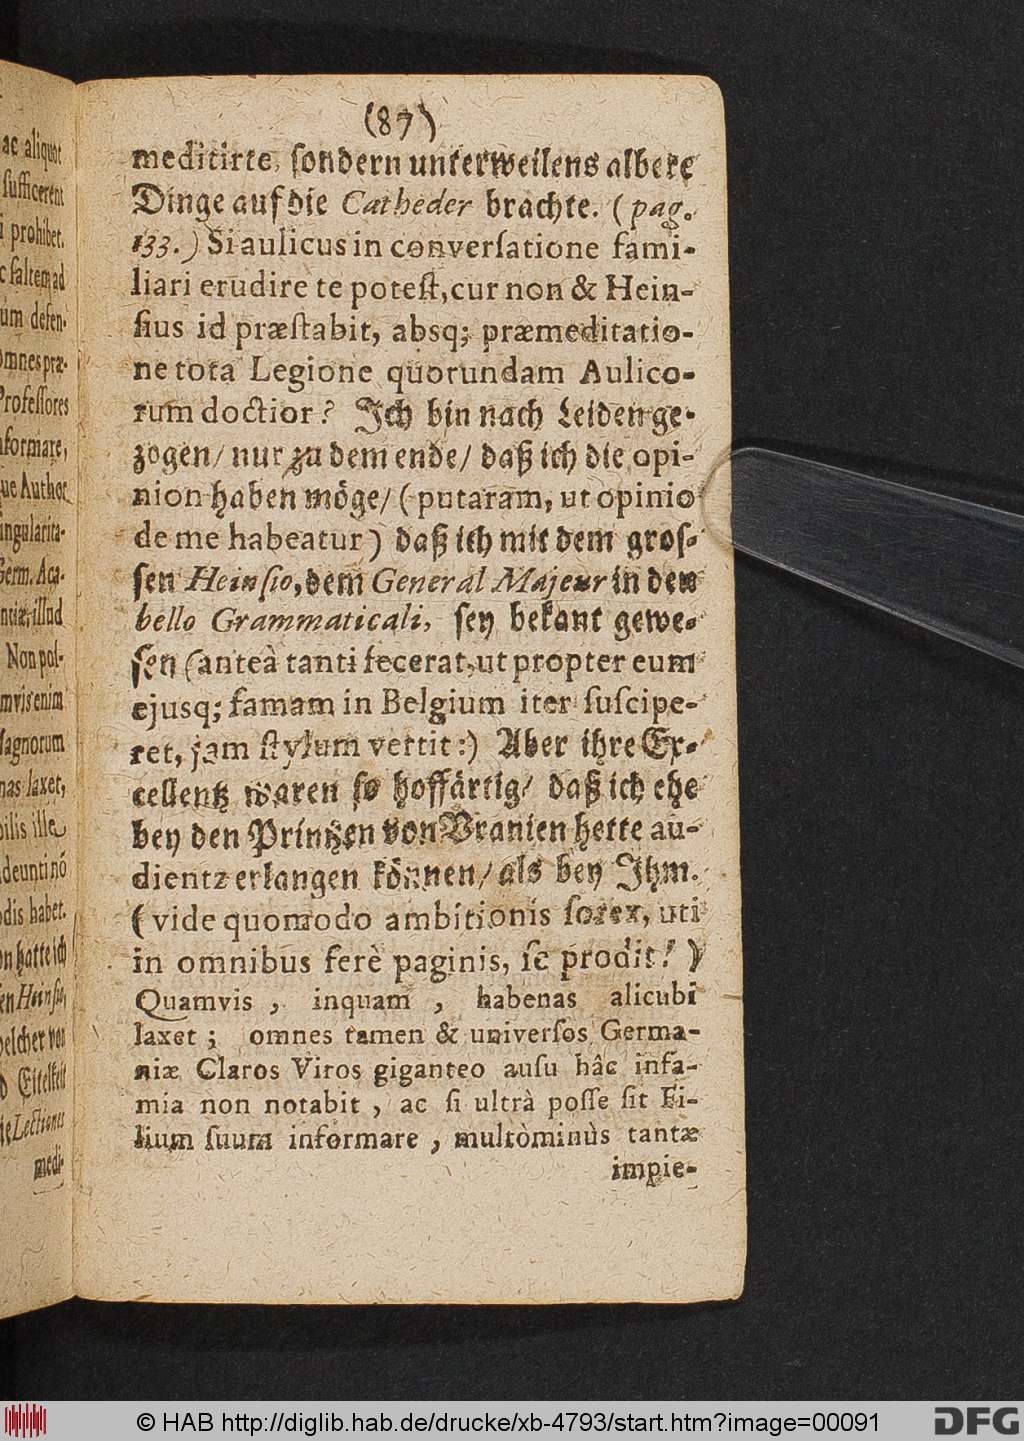 ac aliquot
sufficerent
i prohibet.
c saltem ad
um defen-
omnes præ-
Professores
nformare,
que Author
ingularita-
Germ. Aca-
ntiæ, illud
Non pol-
mvis enim
Magnorum
nas laxet,
bilis ille
deunti nõ
odis habet.
on hatte ich
en Heinsio,
welcher von
d Eitelkeit
ie Lectiones
medi-
(87)
meditirte, ſondern unterweilens albere
Dinge auf die Catheder brachte. (pag.
133.) Si aulicus in converſatione fami-
liari erudire te poteſt, cur non & Hein-
ſius id præſtabit, absq; præmeditatio-
ne tota Legione quorundam Aulico-
rum doctior? Ich bin nach Leiden ge-
zogen/ nur zu dem ende/ daß ich die opi-
nion haben möge/ (putaram, ut opinio
de me habeatur) daß ich mit dem groſ-
ſen Heinſio, dem General Majeur in den
bello Grammaticali, ſey bekant gewe-
ſen (anteà tanti fecerat, ut propter eum
ejusq; famam in Belgium iter ſuſcipe-
ret, jam ſtylum vertit:) Aber ihre Ex-
cellentz waren ſo hoffärtig/ daß ich ehe
bey den Printzen von Vranien hette au-
dientz erlangen können/ als bey Ihm.
(vide quomodo ambitionis ſorex, uti
in omnibus ferè paginis, ſe prodit!)
Quamvis, inquam, habenas alicubi
laxet; omnes tamen & univerſos Germa-
niæ Claros Viros giganteo auſu hâc infa-
mia non notabit, ac ſi ultrà poſſe ſit Fi-
lium ſuum informare, multòminùs tantæ
impie-
© HAB http://diglib.hab.de/drucke/xb-4793/start.htm?image=00091
DFG